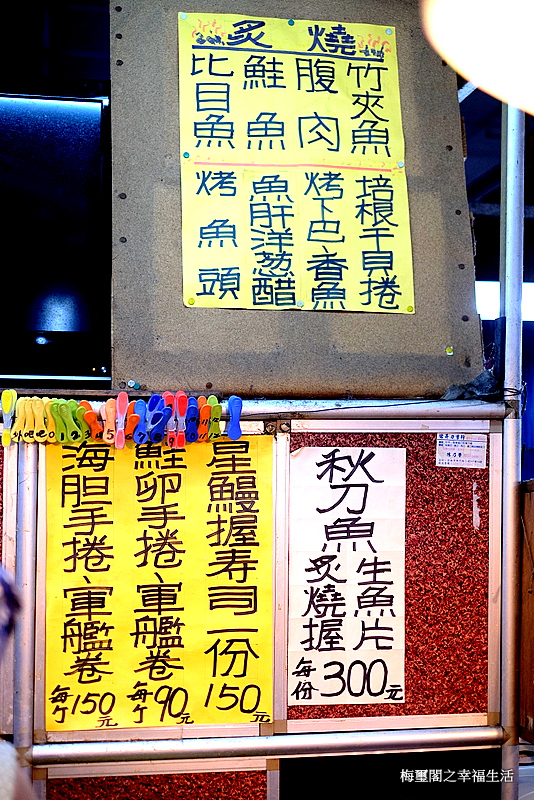 炙燒
竹夾魚
腹肉
鮭魚
比目魚
培根干貝捲
烤下巴、香魚
魚肝洋葱醋
烤魚頭
星鰻握寿司一份
150元
鮭卵手捲、軍艦卷
每个90元
海胆手捲、軍艦卷
每个150元
秋刀魚
生魚片
炙燒握
每份300元
梅璽閣之幸福生活